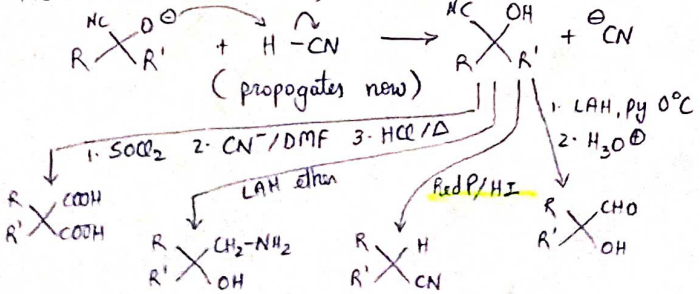 NC O⊖ NC OH
R R' + H –CN → R R' + ⊖CN
( propogates now )
1. LAH, Py 0°C
2. H3O⊕
1. SOCl2 2. CN⁻/DMF 3. HCl/Δ
LAH ether
Red P/HI
R COOH
R' COOH
R CH2–NH2
R' OH
R H
R' CN
R CHO
R' OH